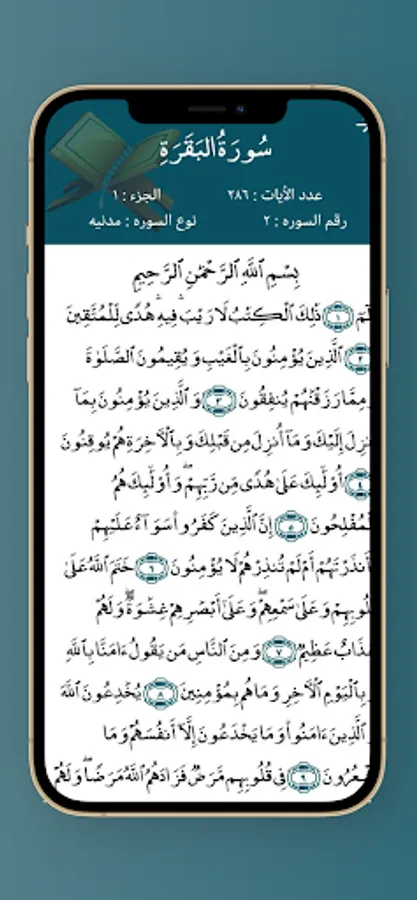 سُورَةُ البَقَرَةِ
عدد الأيات : ٢٨٦ الجزء : ١
رقم السوره : ٢ نوع السوره : مدنيه
بِسْمِ ٱللَّهِ ٱلرَّحْمَٰنِ ٱلرَّحِيمِ
لٓمٓ ١ ذَٰلِكَ ٱلْكِتَٰبُ لَا رَيْبَ ۛ فِيهِ ۛ هُدًى لِّلْمُتَّقِينَ
٢ ٱلَّذِينَ يُؤْمِنُونَ بِٱلْغَيْبِ وَيُقِيمُونَ ٱلصَّلَوٰةَ
وَمِمَّا رَزَقْنَٰهُمْ يُنفِقُونَ ٣ وَٱلَّذِينَ يُؤْمِنُونَ بِمَآ
نزِلَ إِلَيْكَ وَمَآ أُنزِلَ مِن قَبْلِكَ وَبِٱلْءَاخِرَةِ هُمْ يُوقِنُونَ
٤ أُو۟لَٰٓئِكَ عَلَىٰ هُدًى مِّن رَّبِّهِمْ ۖ وَأُو۟لَٰٓئِكَ هُمُ
لْمُفْلِحُونَ ٥ إِنَّ ٱلَّذِينَ كَفَرُوا۟ سَوَآءٌ عَلَيْهِمْ
ءَأَنذَرْتَهُمْ أَمْ لَمْ تُنذِرْهُمْ لَا يُؤْمِنُونَ ٦ خَتَمَ ٱللَّهُ عَلَىٰ
لُوبِهِمْ وَعَلَىٰ سَمْعِهِمْ ۖ وَعَلَىٰٓ أَبْصَٰرِهِمْ غِشَٰوَةٌ ۖ وَلَهُمْ
عَذَابٌ عَظِيمٌ ٧ وَمِنَ ٱلنَّاسِ مَن يَقُولُ ءَامَنَّا بِٱللَّهِ
وَبِٱلْيَوْمِ ٱلْءَاخِرِ وَمَا هُم بِمُؤْمِنِينَ ٨ يُخَٰدِعُونَ ٱللَّهَ
وَٱلَّذِينَ ءَامَنُوا۟ وَمَا يَخْدَعُونَ إِلَّآ أَنفُسَهُمْ وَمَا
شْعُرُونَ ٩ فِى قُلُوبِهِم مَّرَضٌ فَزَادَهُمُ ٱللَّهُ مَرَضًا ۖ وَلَهُمْ